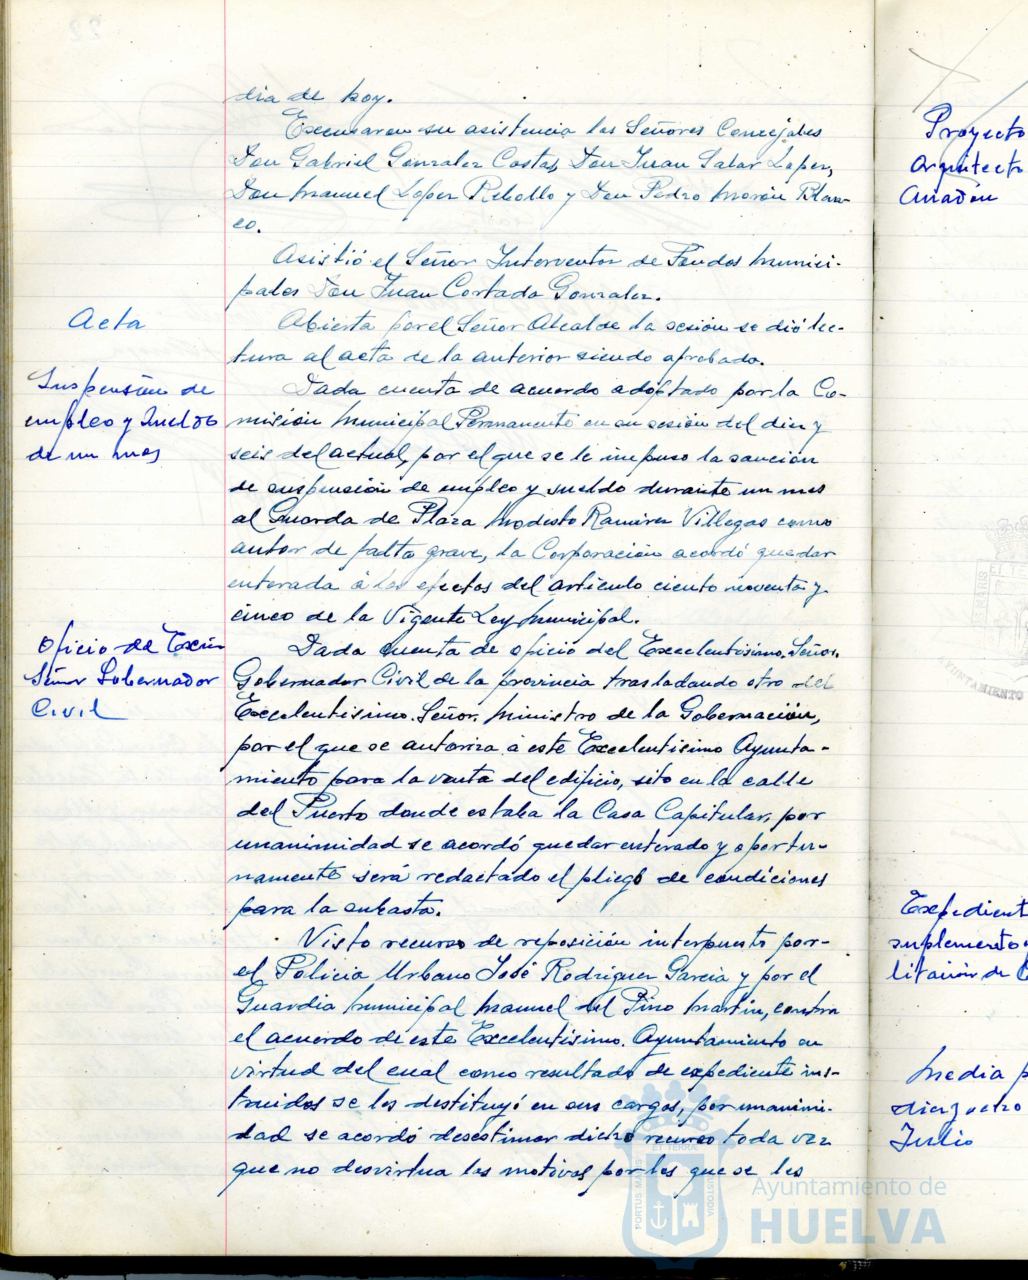 dia de hoy.
Excusaron su asistencia los Señores Concejales
Don Gabriel Gonzalez Costas, Don Juan Salar Lopez,
Don Manuel López Rebollo y Don Pedro Morón Blan-
co.
Asistió el Señor Interventor de Fondos Munici-
pales Don Juan Cortada Gonzalez.
Acta
Abierta por el Señor Alcalde la sesión se dió lec-
tura al acta de la anterior siendo aprobada.
Suspensión de
empleo y sueldo
de un mes
Dada cuenta de acuerdo adoptado por la Co-
misión Municipal Permanente en su sesión del diez y
seis del actual, por el que se le impuso la sanción
de suspensión de empleo y sueldo durante un mes
al Guarda de Plaza Modesto Ramirez Villegas como
autor de falta grave, la Corporación acordó quedar
enterada á los efectos del artículo ciento noventa y
cinco de la Vigente Ley Municipal.
Oficio del Excmo
Señor Gobernador
Civil
Dada cuenta de oficio del Excelentísimo. Señor.
Gobernador Civil de la provincia trasladando otro del
Excelentísimo. Señor. Ministro de la Gobernación,
por el que se autoriza á este Excelentísimo Ayunta-
miento para la venta del edificio, sito en la calle
del Puerto donde estaba la Casa Capitular, por
unanimidad se acordó quedar enterado y oportu-
namente será redactado el pliego de condiciones
para la subasta.
Visto recurso de reposición interpuesto por
el Policia Urbano José Rodriguez Garcia y por el
Guardia Municipal Manuel del Pino Martin, contra
el acuerdo de este Excelentísimo. Ayuntamiento en
virtud del cual como resultado de expediente ins-
truidos se les destituyó en sus cargos, por unanimi-
dad se acordó desestimar dicho recurso toda vez
que no desvirtua los motivos por los que se les
Proyecto
Arquitecto
Anadón
AYUNTAMIENTO
Expedient
suplemento
litación de
Media p
diez y ocho
Julio
PORTUS MARIS ET TERRAE CUSTODIA
Ayuntamiento de
HUELVA